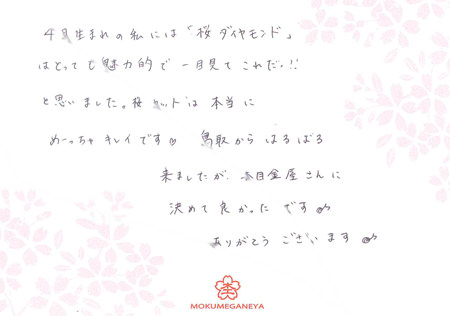 4月生まれの私には「桜ダイヤモンド」
はとっても魅力的で一目見てこれだ!!
と思いました。桜カットは本当に
めーっちゃキレイです♡ 鳥取からはるばる
来ましたが、杢目金屋さんに
決めて良かったです
ありがとうございます
MOKUMEGANEYA